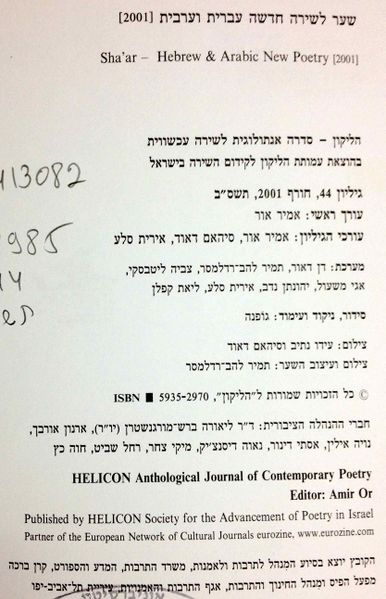 שער לשירה חדשה עברית וערבית [2001]
Sha'ar – Hebrew & Arabic New Poetry [2001]
הליקון – סדרה אנתולוגית לשירה עכשווית
בהוצאת עמותת הליקון לקידום השירה בישראל
413082
גיליון 44, חורף 2001, תשס"ב
עורך ראשי: אמיר אור
עורכי הגיליון: אמיר אור, סיהאם דאוד, אירית סלע
985
מערכת: דן דאור, תמיר להב־רדלמסר, צביה ליטבסקי,
אגי משעול, יהונתן נדב, אירית סלע, ליאת קפלן
סידור, ניקוד ועימוד: גופנה
צילום: עידו נתיב וסיהאם דאוד
צילום ועיצוב השער: תמיר להב־רדלמסר
© כל הזכויות שמורות ל"הליקון", ISBN ■ 5935-2970
חברי ההנהלה הציבורית: ד"ר ליאורה ברש־מורגנשטרן (יו"ר), ארנון אורבך,
נויה אילין, אסתי דינור, נאוה דיסנצ'יק, מיקי צחר, רחל שביט, חוה כץ
HELICON Anthological Journal of Contemporary Poetry
Editor: Amir Or
Published by HELICON Society for the Advancement of Poetry in Israel
Partner of the European Network of Cultural Journals eurozine, www.eurozine.com
הקובץ יוצא בסיוע המנהל לתרבות ולאמנות, משרד התרבות, המדע והספורט, קרן ברכה
מפעל הפיס ומנהל החינוך והתרבות, אגף התרבות והאמנויות, עיריית תל־אביב־יפו